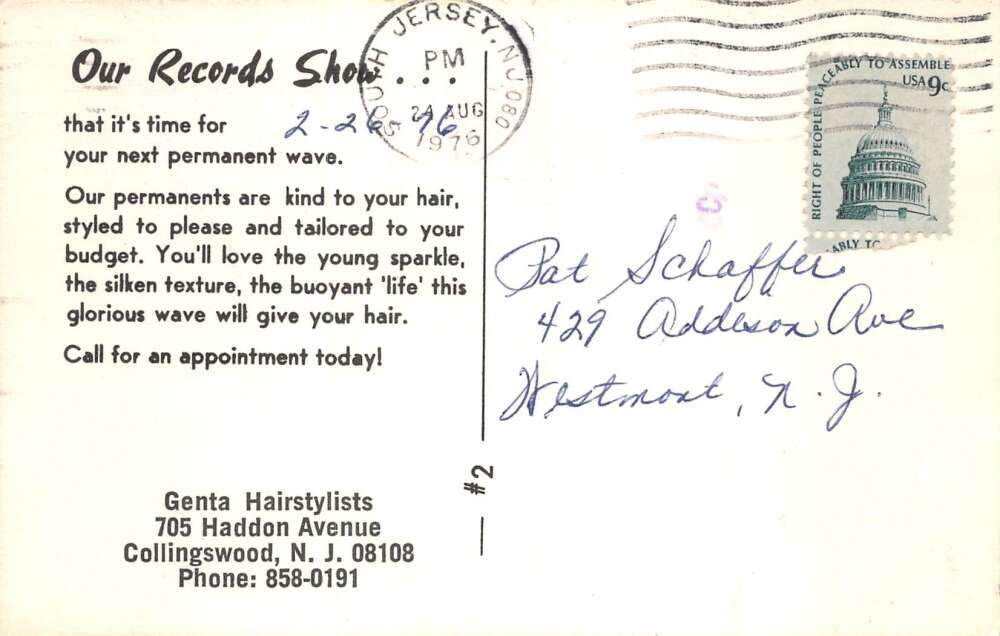 Our Records Show . . .
that it's time for 2-26-76
your next permanent wave.
Our permanents are kind to your hair,
styled to please and tailored to your
budget. You'll love the young sparkle,
the silken texture, the buoyant 'life' this
glorious wave will give your hair.
Call for an appointment today!
Genta Hairstylists
705 Haddon Avenue
Collingswood, N. J. 08108
Phone: 858-0191
#2
SOUTH JERSEY, NJ 080
PM
24 AUG
1976
RIGHT OF PEOPLE PEACEABLY TO ASSEMBLE
USA 9c
ABLY TO
Pat Schaffer
429 Addison Ave
Westmont, N. J.